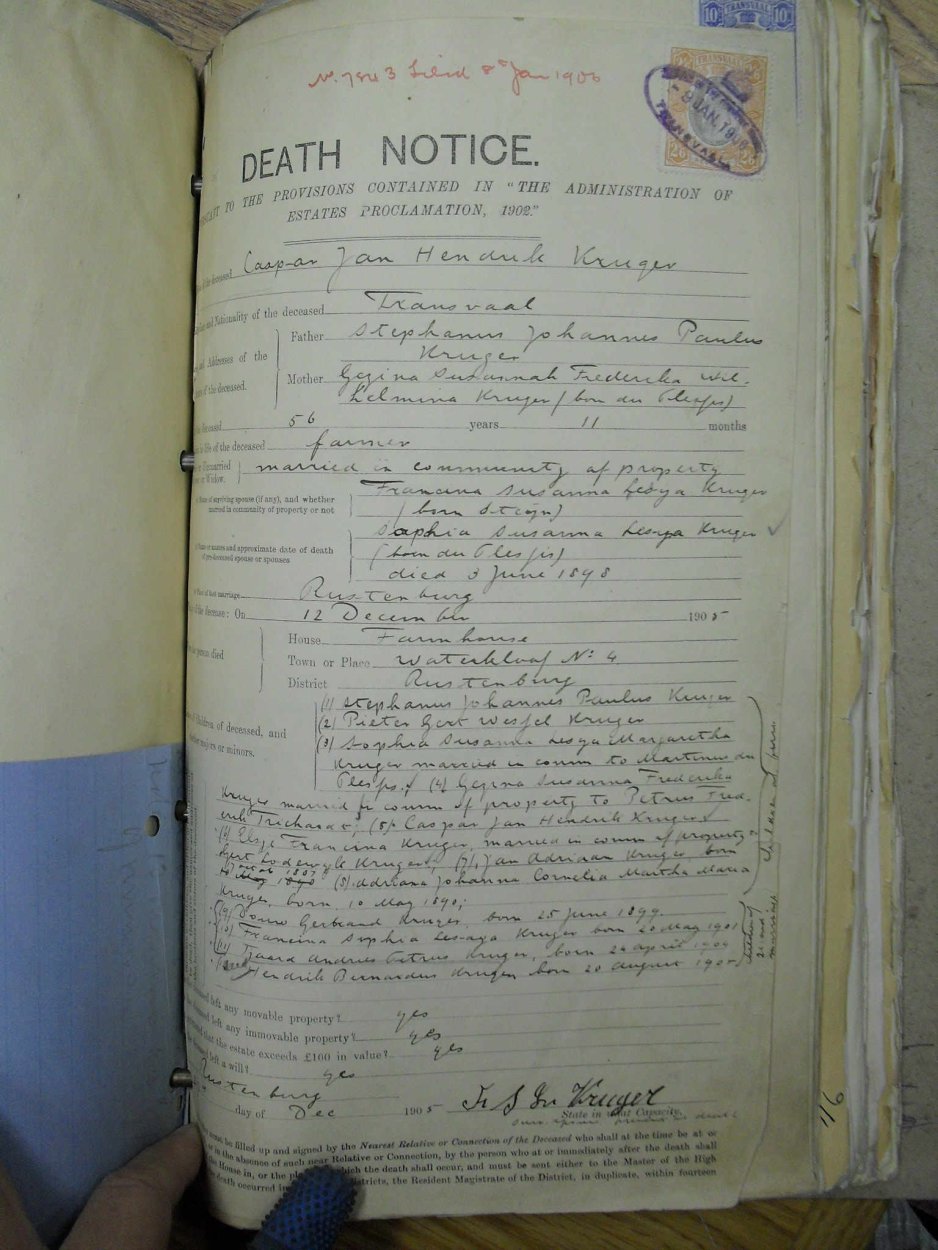 10s TRANSVAAL 10s
No. 7843 Filed 8th Jan 1906
TRANSVAAL
2/6 2/6
JAN 19
TRANSVAAL
DEATH NOTICE.
TO THE PROVISIONS CONTAINED IN "THE ADMINISTRATION OF
ESTATES PROCLAMATION, 1902."
of the deceased Caspar Jan Hendrik Kruger
and Nationality of the deceased Transvaal
Father Stephanus Johannes Paulus
Kruger
Addresses of the
of the deceased.
Mother Gezina Susannah Frederika Wil-
helmina Kruger (born du Plessis)
deceased 56 years 11 months
life of the deceased farmer
Unmarried
or Widow.
married in community of property
Name of surviving spouse (if any), and whether
married in community of property or not
Francina Susanna Lesya Kruger
(born Steyn)
Sophia Susanna Lesya Kruger
Name or names and approximate date of death
of pre-deceased spouse or spouses
(born du Plessis)
died 3 June 1898
Place of last marriage Rustenburg
the decease: On 12 December 1905
person died
House Farmhouse
Town or Place Waterkloof No. 4
District Rustenburg
of Children of deceased, and
whether majors or minors.
(1) Stephanus Johannes Paulus Kruger
(2) Pieter Gert Wessel Kruger
(3) Sophia Susanna Lesya Margaretha
Kruger married in comm to Martinus du
Plessis; (4) Gezina Susanna Frederika
Kruger married in comm of property to Petrus Fred-
erik Trichardt; (5) Caspar Jan Hendrik Kruger
(6) Elsje Francina Kruger, married in comm of property
Gert Lodewyk Kruger; (7) Jan Adriaan Kruger, born
10 May 1890 (8) Adriana Johanna Cornelia Martha Maria
Kruger, born, 10 May 1890;
(9) Douw Gerbrand Kruger, born 25 June 1899.
(10) Francina Sophia Lesaya Kruger born 20 May 1901
(11) Tjaard Andries Petrus Kruger, born 24 April 1904
Hendrik Bernardus Kruger born 20 August 1905
children of
children of
2nd
marriage
left any movable property? yes
left any immovable property? yes
that the estate exceeds £100 in value? yes
left a will? yes
Rustenburg
day of Dec 1905
Kruger
State in what Capacity.
must be filled up and signed by the Nearest Relative or Connection of the Deceased who shall at the time be at or
in the absence of such near Relative or Connection, by the person who at or immediately after the death shall
the House in, or the which the death shall occur, and must be sent either to the Master of the High
death occurred in Districts, the Resident Magistrate of the District, in duplicate, within fourteen
116